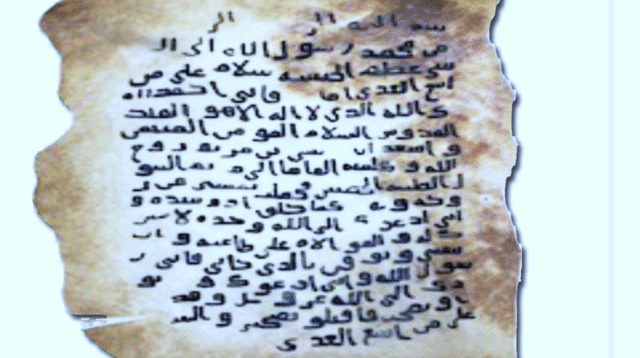 بسم الله الر الر
من محمد رسول الله الى ال
عظيم الحبشة سلام على من
اتبع الهدى اما فاني احمد
الله الذي لا اله الا هو الملك
القدوس السلام المومن المهيمن
و اشهد ان عيسى بن مريم روح
الله و كلمته القاها الى مريم البتو
ل الطيبة الحصينة فحملت بعيسى من ر
وحه و كما خلق ادم بيده و
اني ادعوك الى الله وحده لا شر
يك له و الموالاة على طاعته و ان
تتبعني و توقن بالذي جاني فاني ر
سول الله و اني ادعوك و جنو
دك الى الله عز و جل و قد
و نصحت فاقبلوا نصيحتي و السلا
على من اتبع الهدى